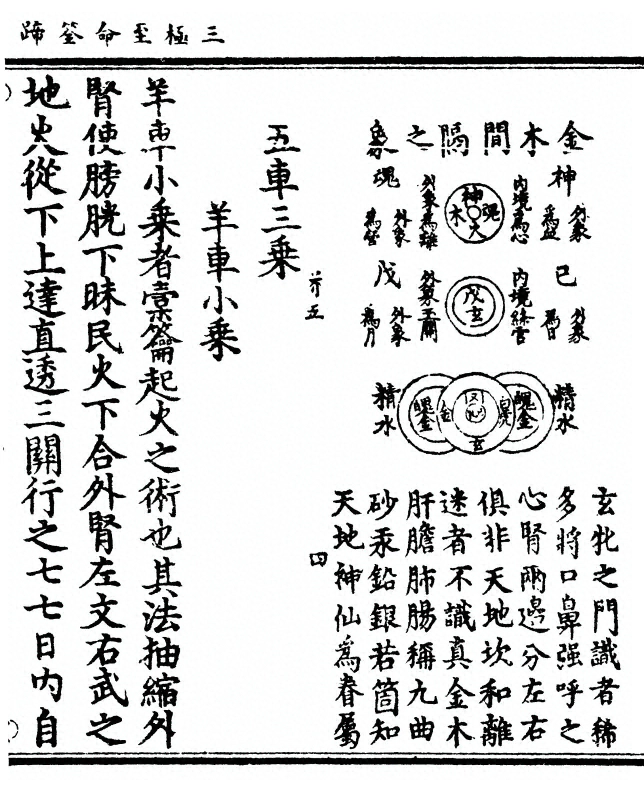 三極至命筌蹄
金木間隔之象
神
外象為
內境為心
神
魂
木
火
外象為離
魂
外象為
己
外象為日
內境絳宮
戊
玄
外象玉關
戊
外象為月
精水
魄金
玄
魄金
精水
玄牝之門識者稀
多將口鼻强呼之
心腎兩邊分左右
俱非天地坎和離
迷者不識真金木
肝膽肺腸稱九曲
砂汞鉛銀若箇知
天地神仙為眷屬
四
五車三乘
羊車小乘
羊車小乘者橐籥起火之術也其法抽縮外
腎使膀胱下昧民火下合外腎左文右武之
地火從下上達直透三關行之七七日內自